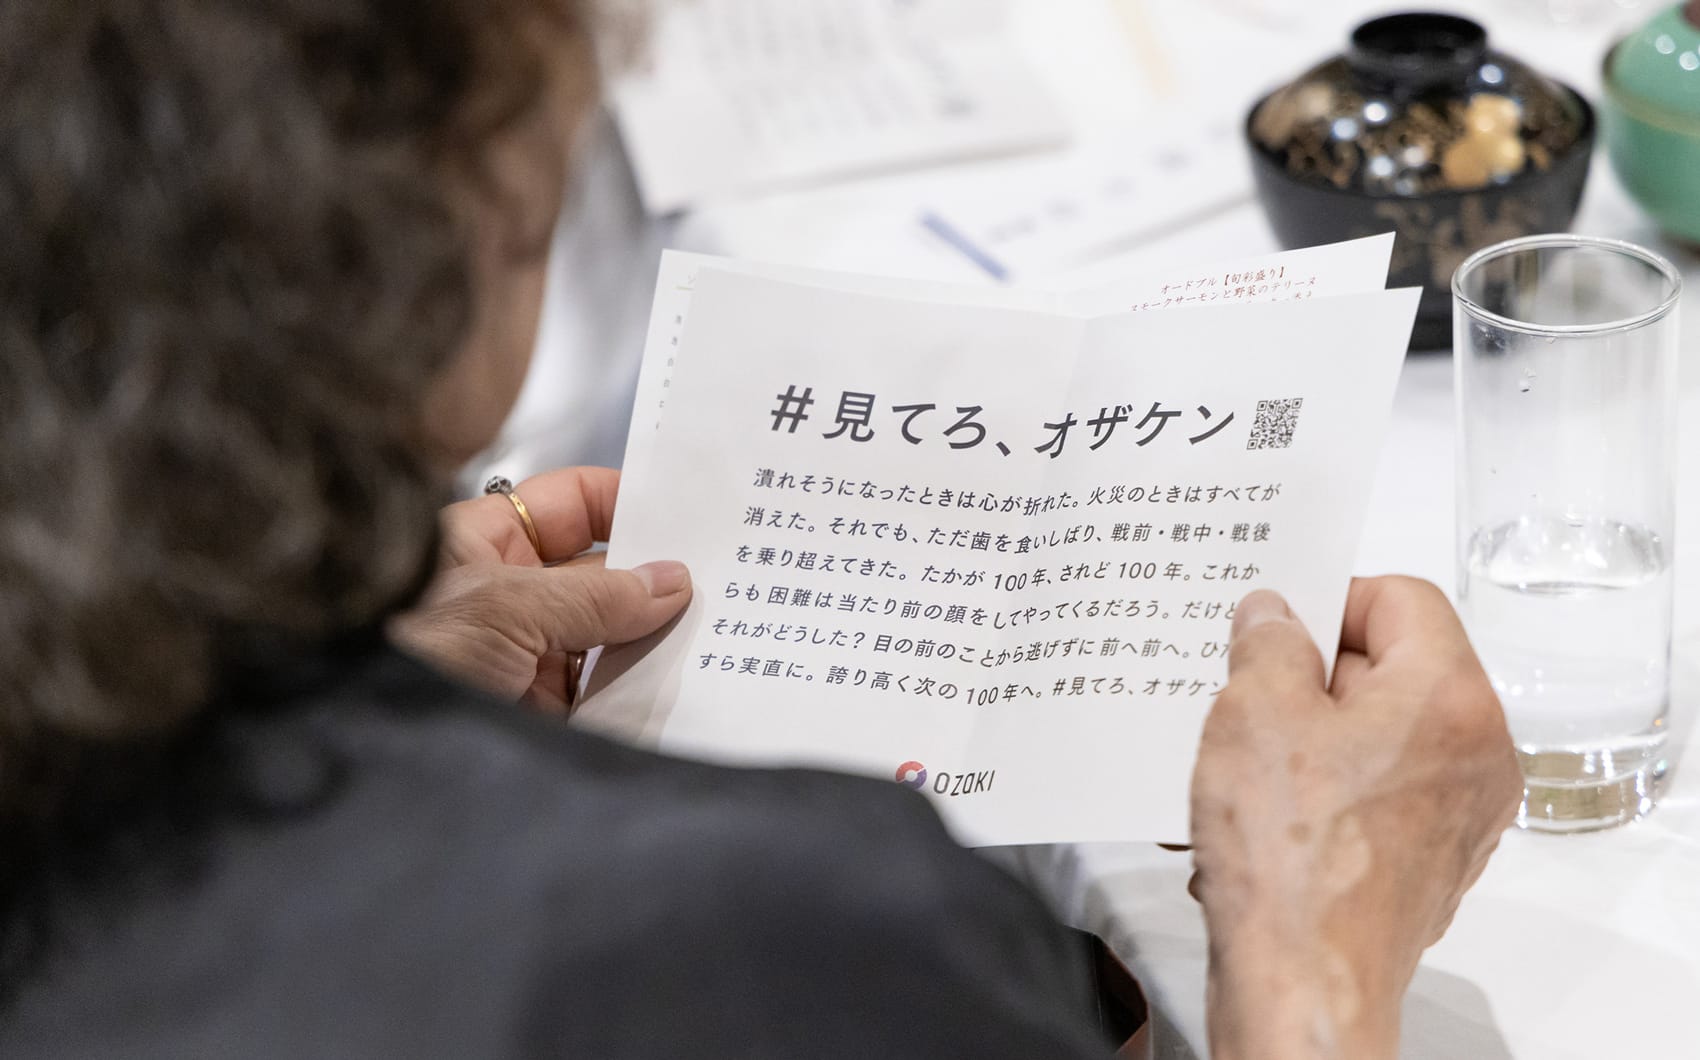 オードブル【旬彩盛り】
スモークサーモンと野菜のテリーヌ
#見てろ、オザケン
潰れそうになったときは心が折れた。火災のときはすべてが
消えた。それでも、ただ歯を食いしばり、戦前・戦中・戦後
を乗り超えてきた。たかが100年、されど100年。これか
らも困難は当たり前の顔をしてやってくるだろう。だけど
それがどうした?目の前のことから逃げずに前へ前へ。ひ
すら実直に。誇り高く次の100年へ。#見てろ、オザケン
OZAKI